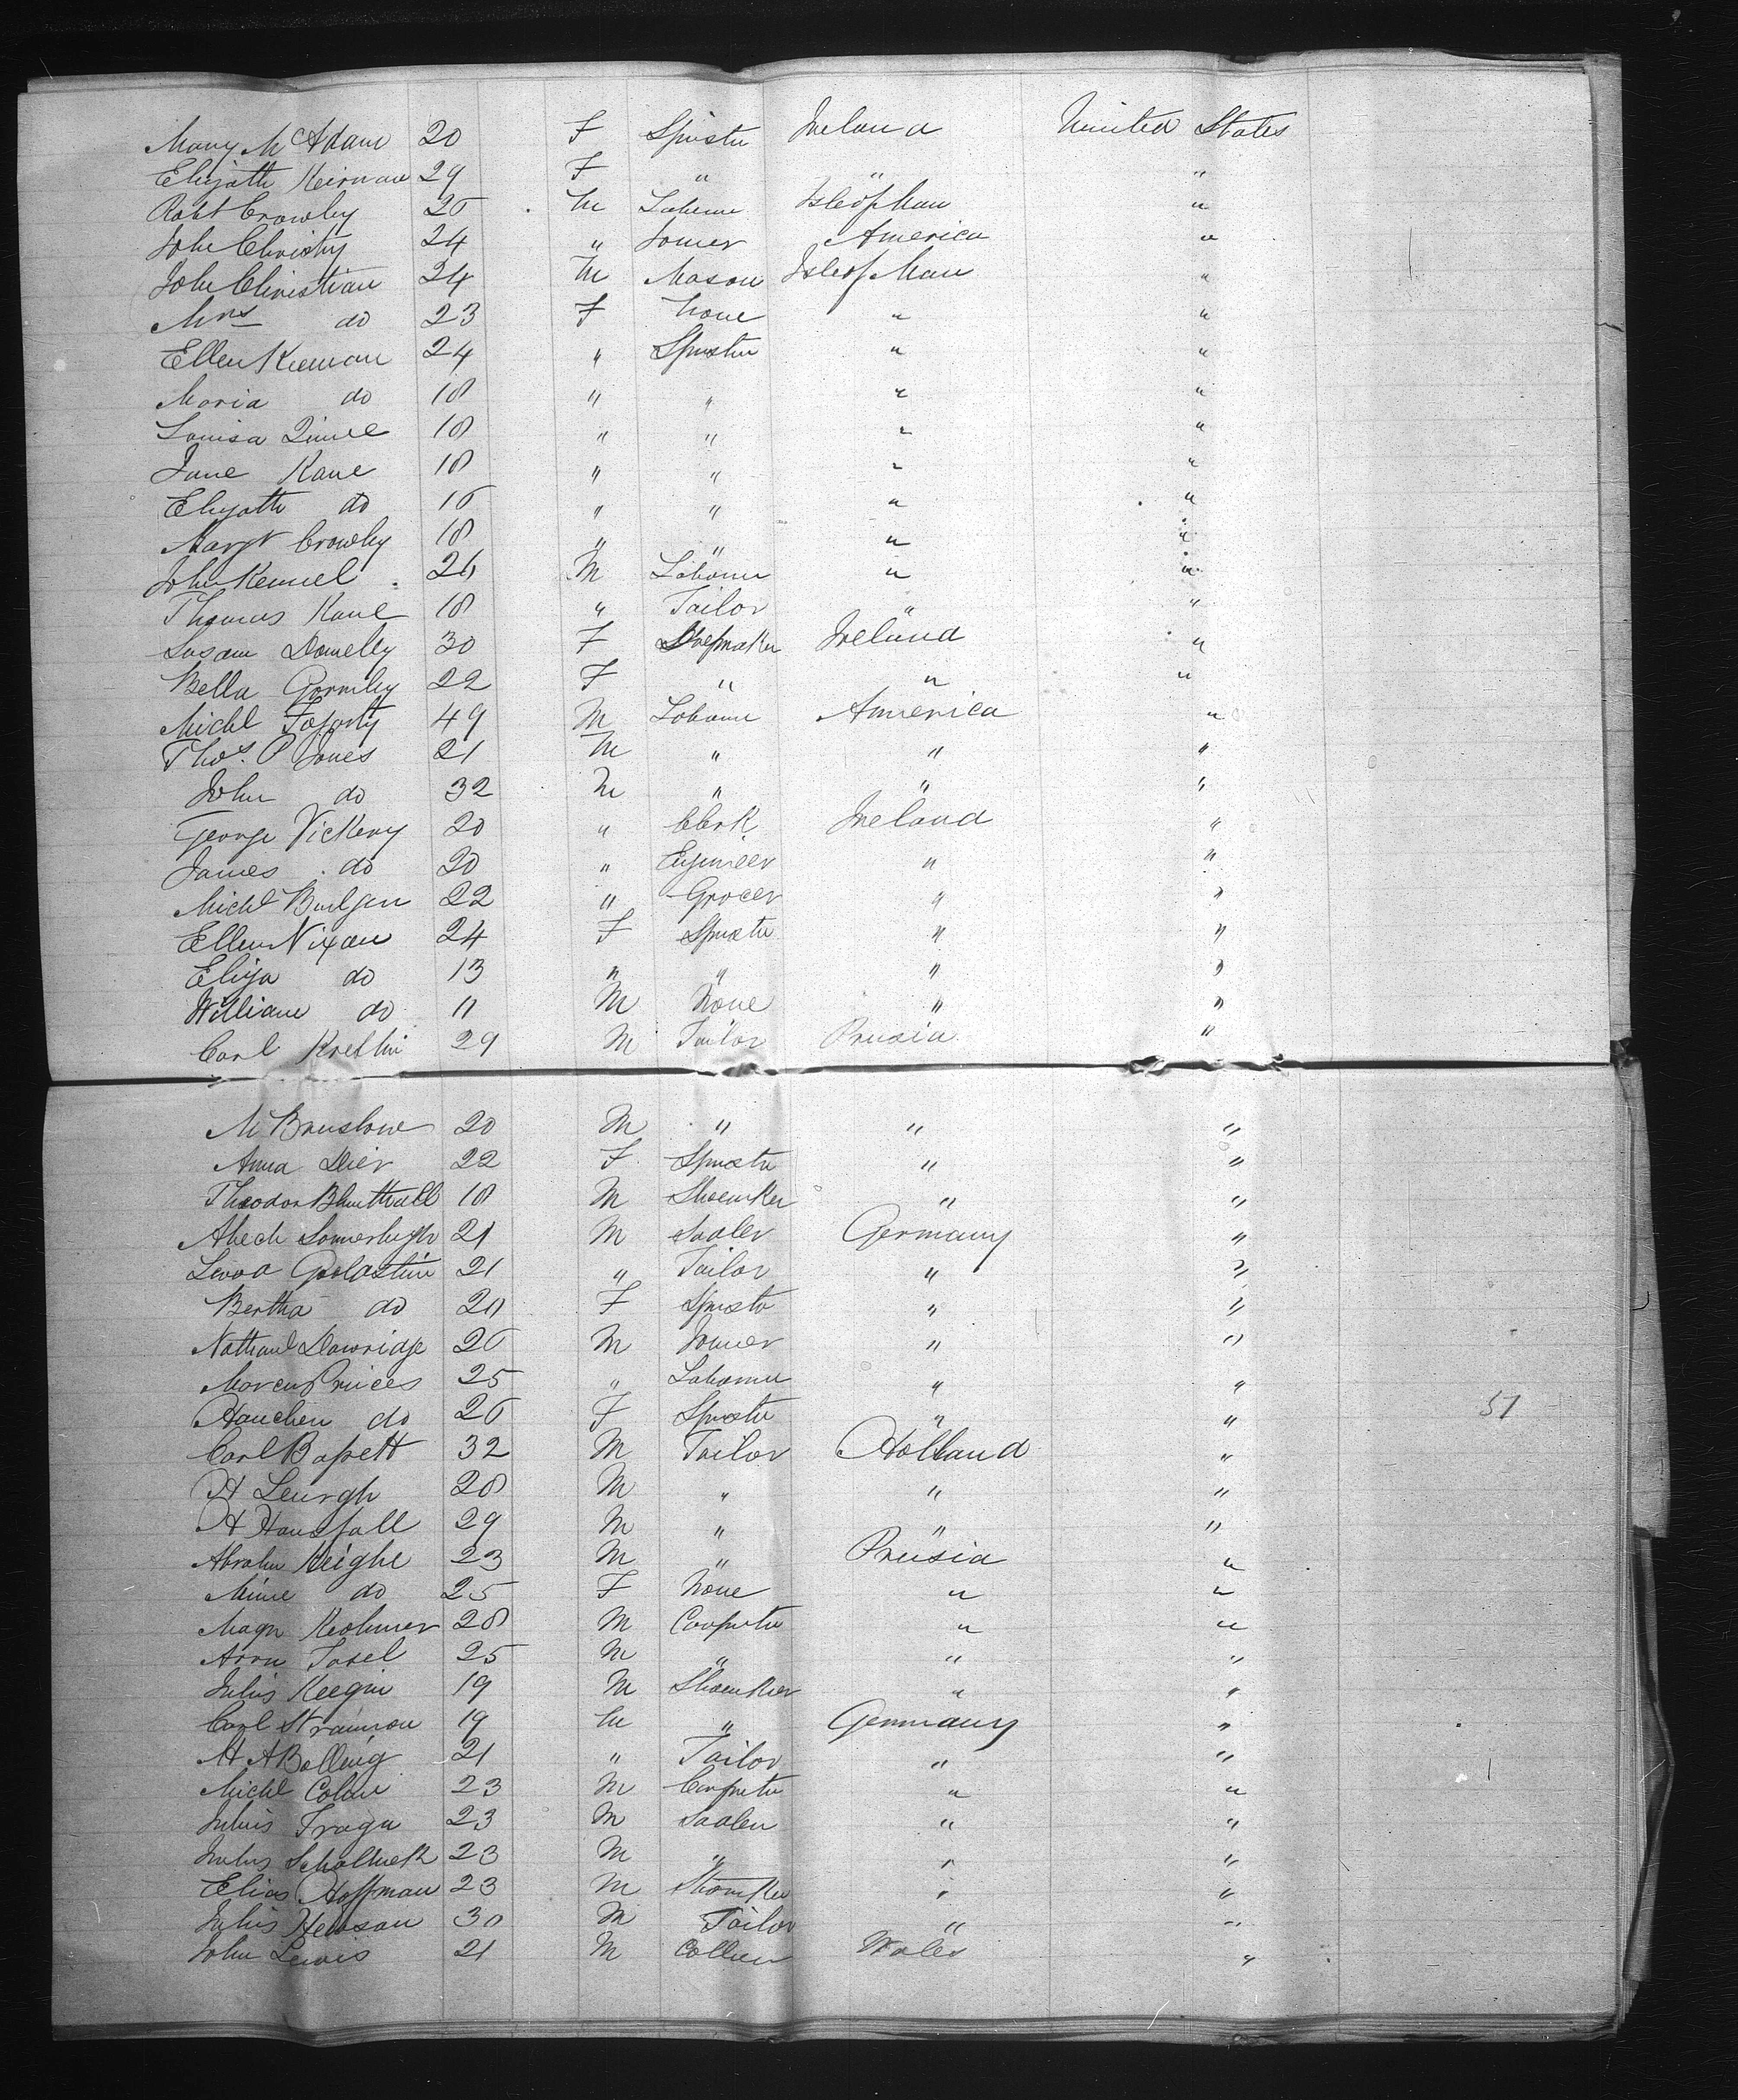 Mary McAdam 20 F Spinster Ireland United States
Elizabeth Keirnan 29 F " " "
Robt Crowley 26 M Laborer Isle of Man "
John Christy 24 " Joiner America "
John Christian 24 M Mason Isle of Man "
Mrs do 23 F None " "
Ellen Keenan 24 " Spinster " "
Maria do 18 " " " "
Louisa 18 " " " "
Jane Kane 18 " " " "
Elizabeth do 16 " " " "
Margt Crowley 18 " " " "
John Kennel 26 M Laborer " "
Thomas Kane 18 " Tailor " "
Susan Donnelly 30 F Ireland "
Bella Gormley 22 F " " "
Michl Fogarty 49 M Laborer America "
Thos. P Jones 21 M " " "
John do 32 M " " "
George Vickery 20 " Clerk Ireland "
James do 20 " Engineer " "
Michl 22 " Grocer " "
Ellen Nixon 24 F Spinster " "
Eliza do 13 " " " "
William do 11 M None " "
Carl 29 M Tailor Prusia "
M 20 M " " "
Anna Deir 22 F Spinster " "
Theodor Blumthall 18 M Shoemker " "
21 M Sadler Germany "
Goldstein 21 " Tailor " "
Bertha do 20 F Spinster " "
26 M Joiner " "
Marcus Princes 25 " Laborer " "
Hanchen do 26 F Spinster " " 51
Carl Bassett 32 M Tailor Holland "
H 28 M " " "
H Hausfall 29 M " " "
Abrahm Keighe 23 M " Prusia "
Mine do 25 F None " "
Magn 28 M Carpenter " "
25 M " " "
Julius Keegin 19 M Shoemker " "
Carl 19 M " Germany "
M A Bolling 21 " Tailor " "
Michl Cohn 23 M Carpenter " "
Julius 23 M Sadler " "
Julius 23 M " " "
Elias Hoffman 23 M Shoemker " "
Julius Hewson 30 M Tailor " "
John Lewis 21 M Collier Wales "